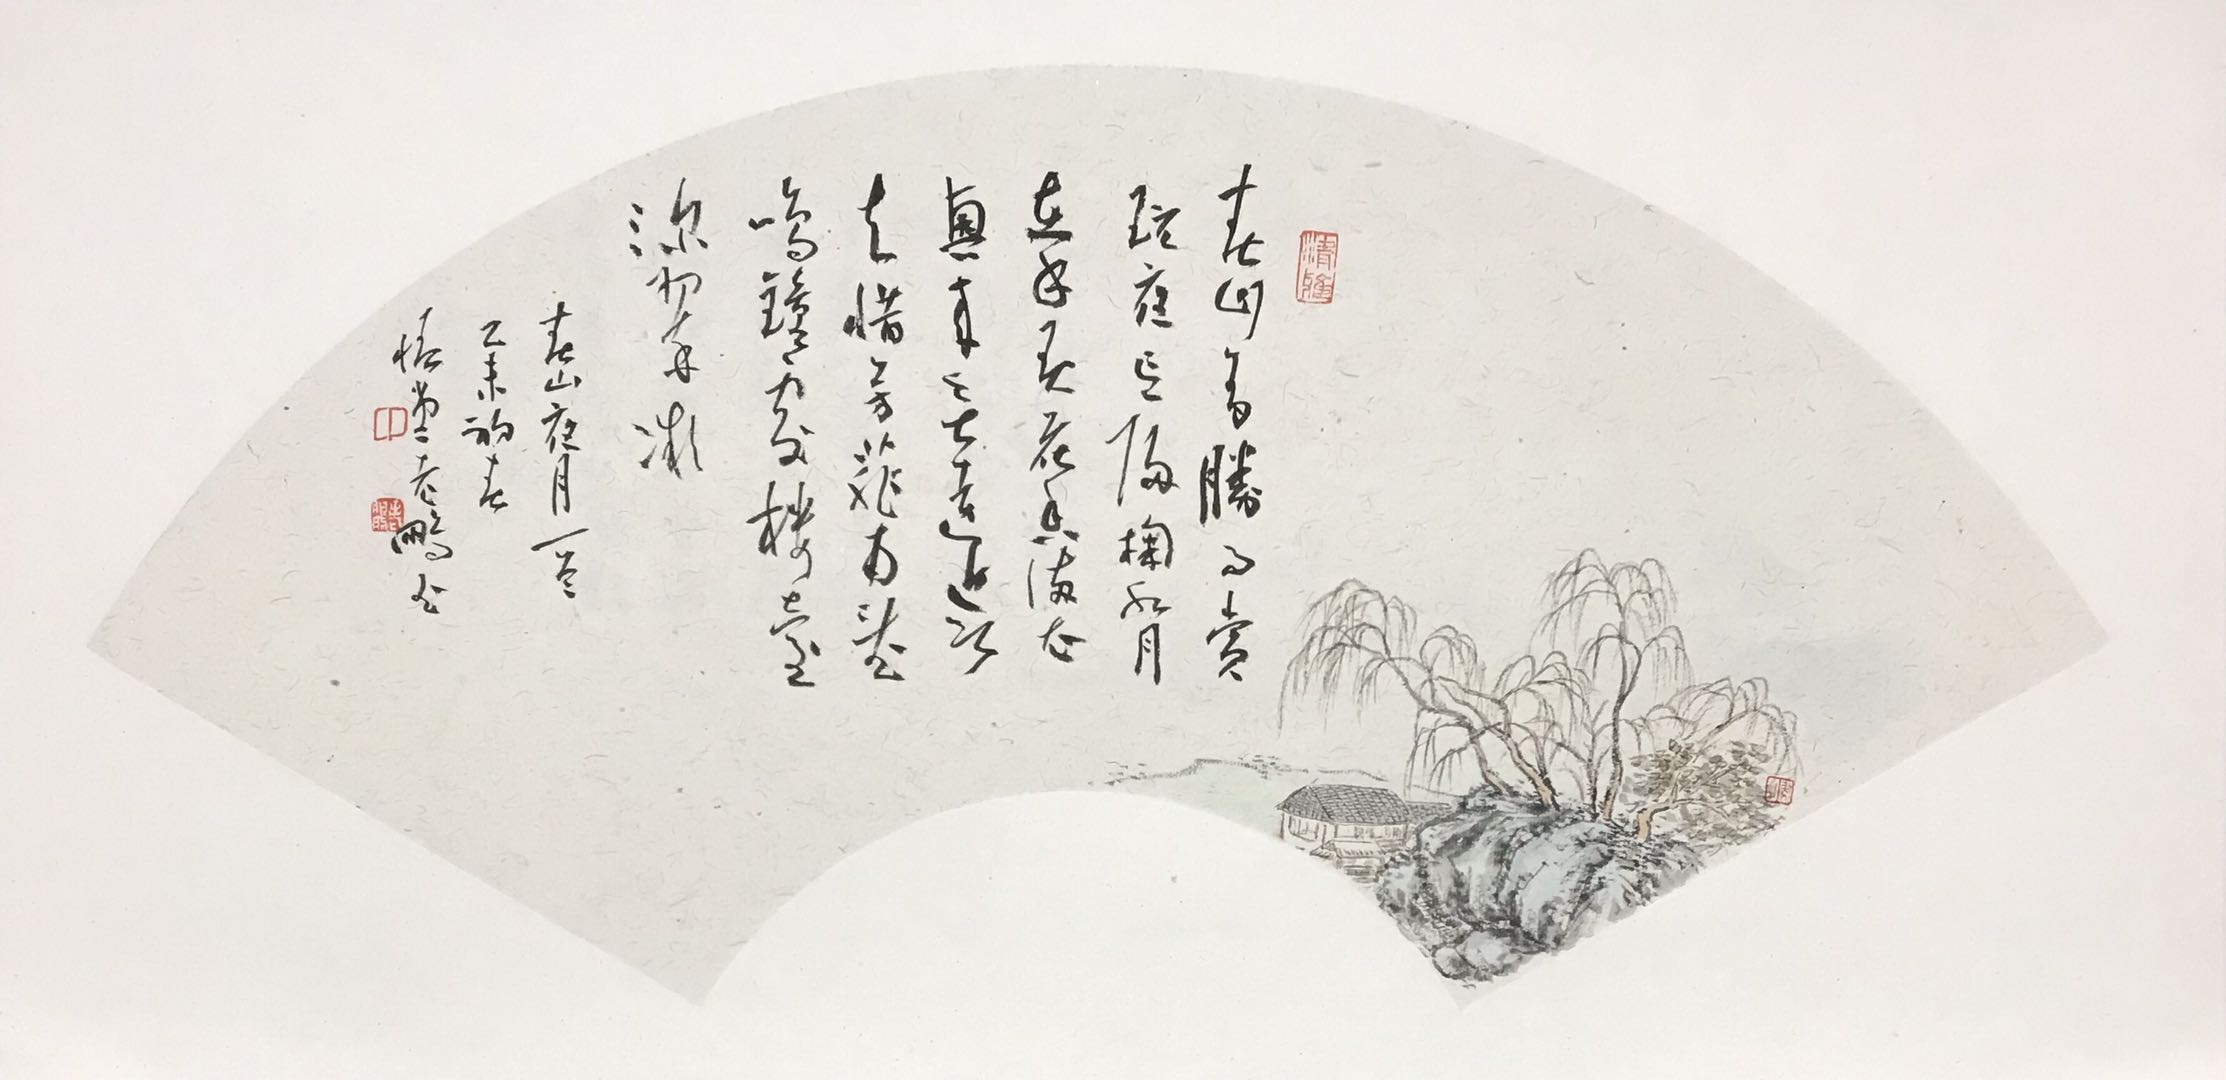 春山多勝事賞
玩夜忘歸掬水月
在手弄花香滿衣
興來無遠近欲
去惜芳菲南望
鳴鐘處樓臺
深翠微
春山夜月一首
乙未初春
鵬